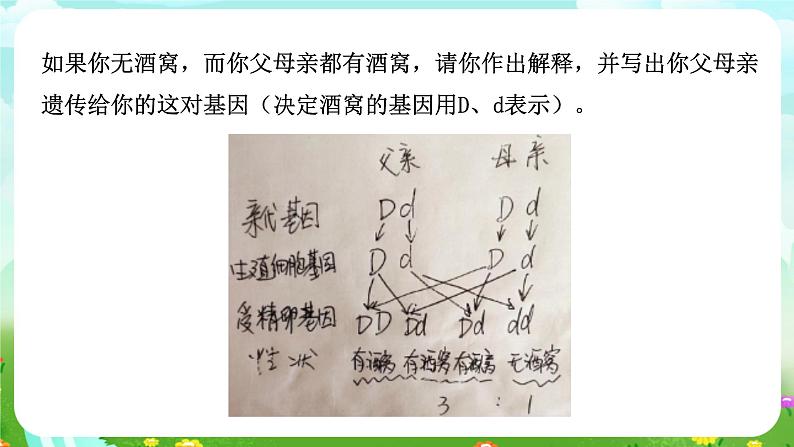 如果你无酒窝，而你父母亲都有酒窝，请你作出解释，并写出你父母亲
遗传给你的这对基因（决定酒窝的基因用D、d表示）。
父亲 母亲
亲代基因 D d D d
生殖细胞基因 D d D d
受精卵基因 DD Dd Dd dd
性状 有酒窝 有酒窝 有酒窝 无酒窝
3 : 1